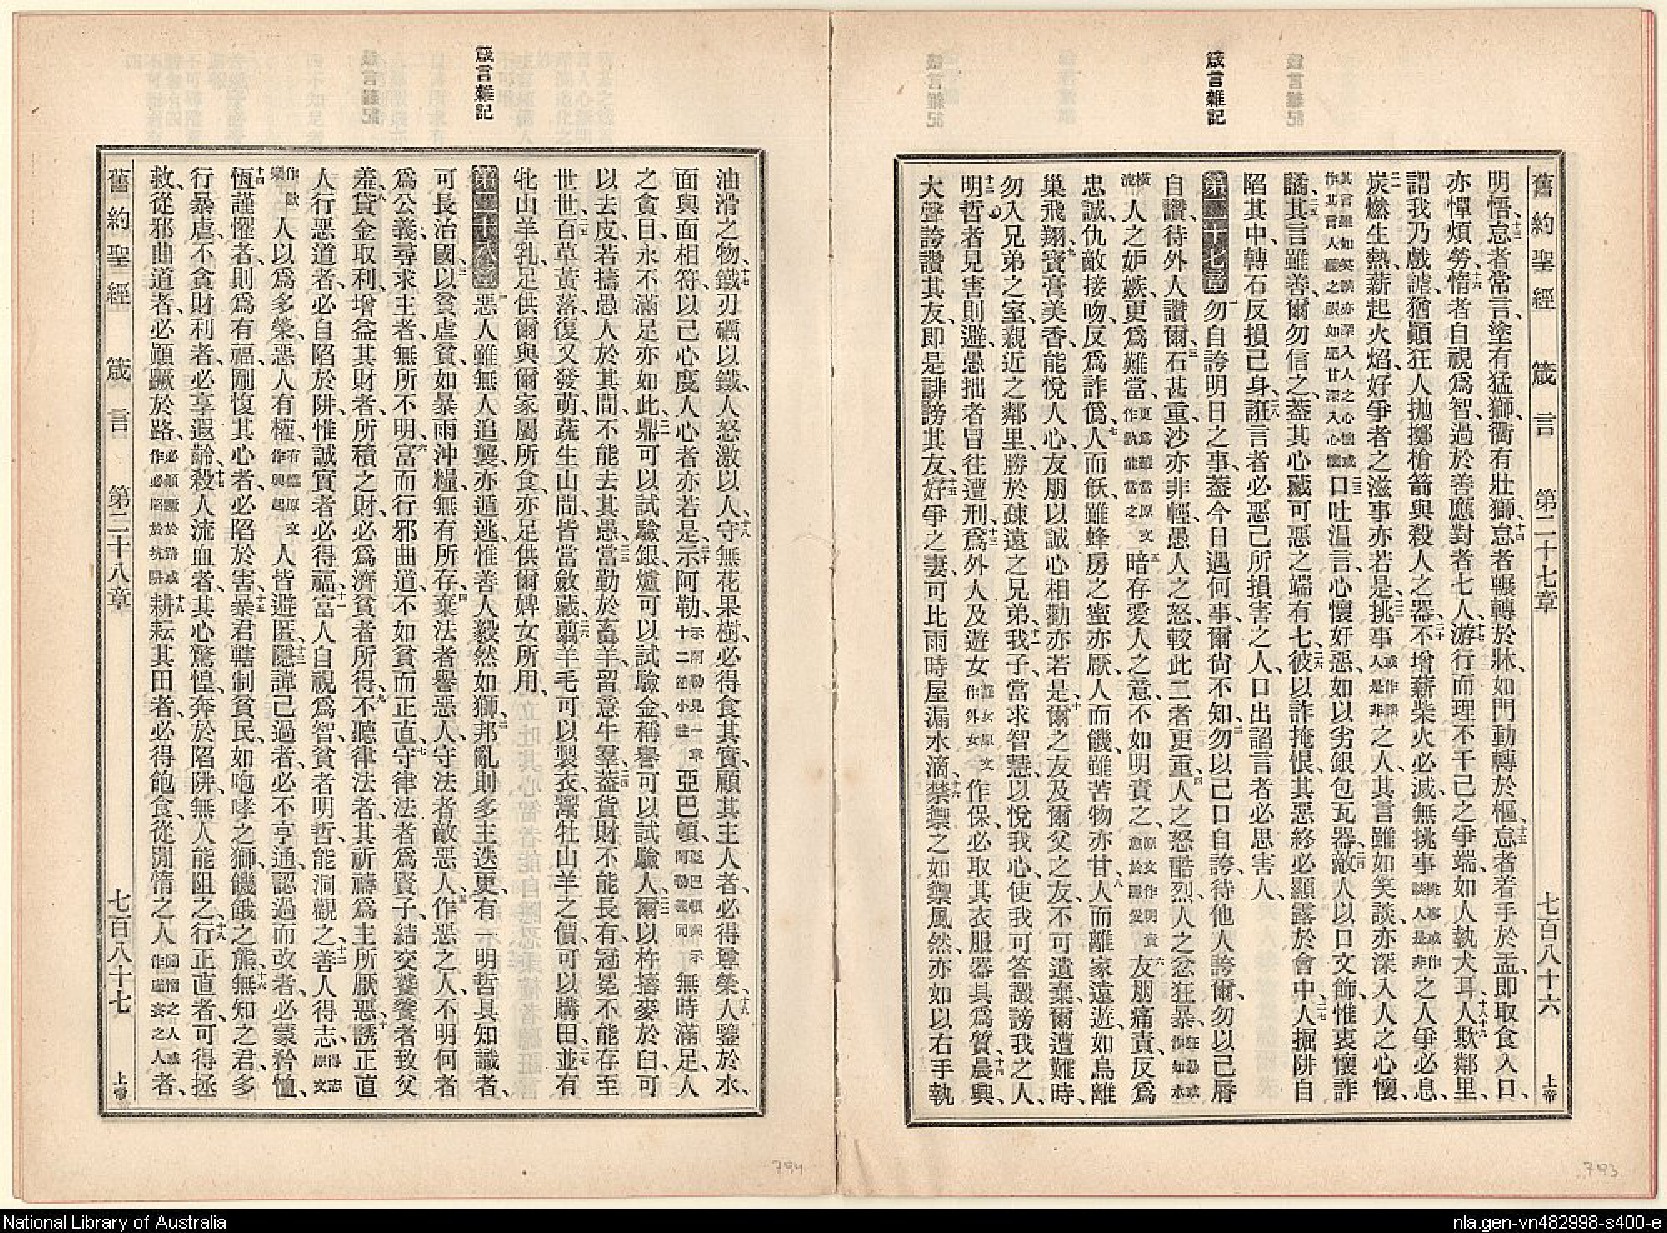 箴言雜記
舊約聖經 箴言 第二十七章 七百八十六 上帝
明悟、十三怠者常言、塗有猛獅、衢有壯獅、十四怠者輾轉於牀、如門動轉於樞、十五怠者着手於盂、卽取食入口、
亦憚煩勞、十六惰者自視爲智、過於善應對者七人、十七游行而理不干己之爭端、如人執犬耳、十八十九人欺鄰里、
謂我乃戲謔、猶顚狂人拋擲槍箭與殺人之器、二十不增薪柴、火必滅、無挑事挑事或作談人是非之人、爭必息、
二一炭燃生熱、薪起火焰、好爭者之滋事亦若是、二二挑事或作談人是非之人、其言雖如笑談、亦深入人之心懷、
其言雖如笑談亦深入人之心懷或作其言人聽之服如嗜甘深入心懷二三口吐温言、心懷奸惡、如以劣銀包瓦器、二四敵人以口文飾、惟衷懷詐
譎、二五其言雖善、爾勿信之、蓋其心藏可惡之端有七、二六彼以詐掩恨、其惡終必顯露於會中、二七人掘阱自
陷其中、轉石反損己身、二八誑言者必惡己所損害之人、口出諂言者必思害人、
第二十七章 一勿自誇明日之事、蓋今日遇何事、爾尙不知、二勿以己口自誇、待他人誇爾、勿以己唇
自讚、待外人讚爾、三石甚重、沙亦非輕、愚人之怒、較此二者更重、四人之怒酷烈、人之忿狂暴、
人之妒嫉更爲難當、更爲難當原文作孰能當之五暗存愛人之意、不如明責之、六友朋痛責、反爲
忠誠、仇敵接吻、反爲詐僞、七人而飫、雖蜂房之蜜亦厭、人而饑、雖苦物亦甘、八人而離家遠遊、如鳥離
巢飛翔、九寶膏美香、能悅人心、友朋以誠心相勸亦若是、十爾之友及爾父之友、不可遺棄、爾遭難時、
勿入兄弟之室、親近之鄰里、勝於疎遠之兄弟、十一我子、當求智慧、以悅我心、使我可答譭謗我之人、
十二明哲者見害則避、愚拙者冒往遭刑、十三爲外人及遊女遊女原文作外女作保、必取其衣服器具爲質、十四晨興
大聲誇讚其友、卽是誹謗其友、十五好爭之妻、可比雨時屋漏水滴、十六禁禦之如禦風然、亦如以右手執
箴言雜記
油滑之物、十七鐵刃礪以鐵、人怒激以人、十八守無花果樹、必得食其實、顧其主人者、必得尊榮、十九人鑒於水、
面與面相符、以己心度人心者亦若是、二十示阿勒、示阿勒見一章十二節小註亞巴頓、亞巴頓與示阿勒義同無時滿足、人
之貪目、永不滿足亦如此、二一鼎可以試驗銀、爐可以試驗金、稱譽可以試驗人、二二爾以杵擣麥於臼、可
以去皮、若擣愚人於其間、不能去其愚、二三當勤於畜羊、留意牛羣、二四蓋貨財不能長有、冠冕不能存至
世世、二五百草黃落、復又發萌、蔬生山間、皆當斂藏、二六翦羊毛可以製衣、鬻牡山羊之價、可以購田、二七並有
牝山羊乳、足供爾與爾家屬所食、亦足供爾婢女所用、
第二十八章 一惡人雖無人追襲亦遁逃、惟善人毅然如獅、二邦亂則多主迭更、有一明哲具知識者、
可長治國、三以貧虐貧、如暴雨沖糧、無有所存、四棄法者譽惡人、守法者敵惡人、五作惡之人、不明何者
爲公義、尋求主者、無所不明、六富而行邪曲道、不如貧而正直、七守律法者爲賢子、結交饕餮者致父
羞、八貸金取利、增益其財者、所積之財、必爲濟貧者所得、九不聽律法者、其祈禱爲主所厭惡、十誘正直
人行惡道者、必自陷於阱、惟誠實者必得福、十一富人自視爲智、貧者明哲、能洞觀之、十二善人得志、得志原文
作歡樂人以爲多榮、惡人有權、有權原文作興起人皆避匿、十三隱諱己過者、必不亨通、認過而改者、必蒙矜恤、
十四恆謹懼者、則爲有福、剛愎其心者、必陷於害、十五暴君轄制貧民、如咆哮之獅、饑餓之熊、十六無知之君、多
行暴虐、不貪財利者、必享遐齡、十七殺人流血者、其心驚惶、奔於陷阱、無人能阻之、十八行正直者、可得拯
救、從邪曲道者、必顚蹶於路、必顚蹶於路或作必陷於坑阱十九耕耘其田者、必得飽食、從閒惰之人閒惰之人或作虛妄之人者、
舊約聖經 箴言 第二十八章 七百八十七 上帝
794
793
National Library of Australia
nla.gen-vn482998-s400-e